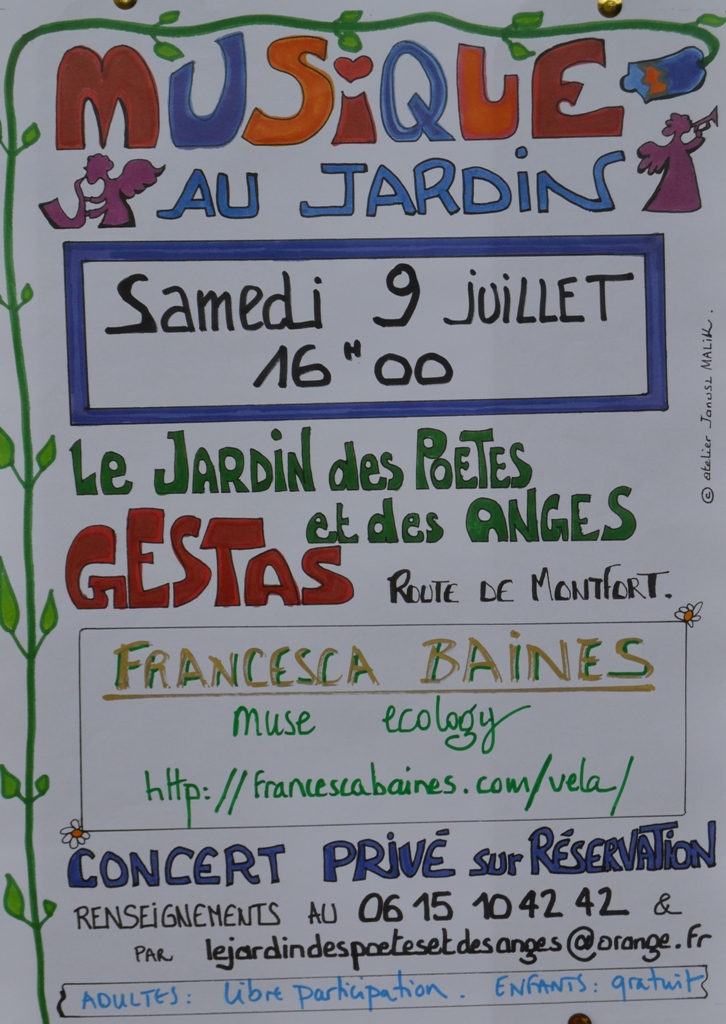 MUSiQUE
AU JARDiN
Samedi 9 JUiLLET
16H00
© atelier Janusz MALiK.
Le JARDiN des POETES
et des ANGES
GESTAS ROUTE DE MONTFORT.
FRANCESCA BAiNES
muse ecology
http://francescabaines.com/vela/
CONCERT PRiVÉ sur RÉSERVATiON
RENSEiGNEMENTS AU 06 15 10 42 42 &
PAR lejardindespoetesetdesanges@orange.fr
ADULTES: Libre participation. ENFANTS: gratuit